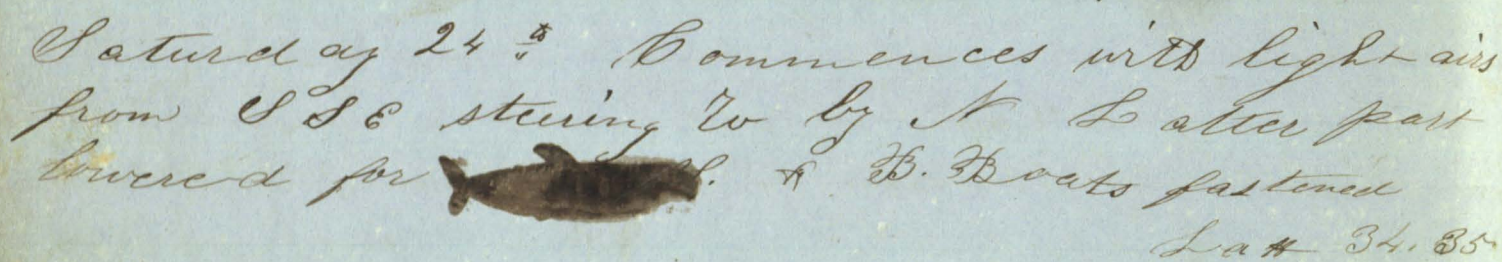 Saturday 24th Commences with light airs
from SSE steering W by N Latter part
lowered for S. & B. Boats fastened
Latt 34.35